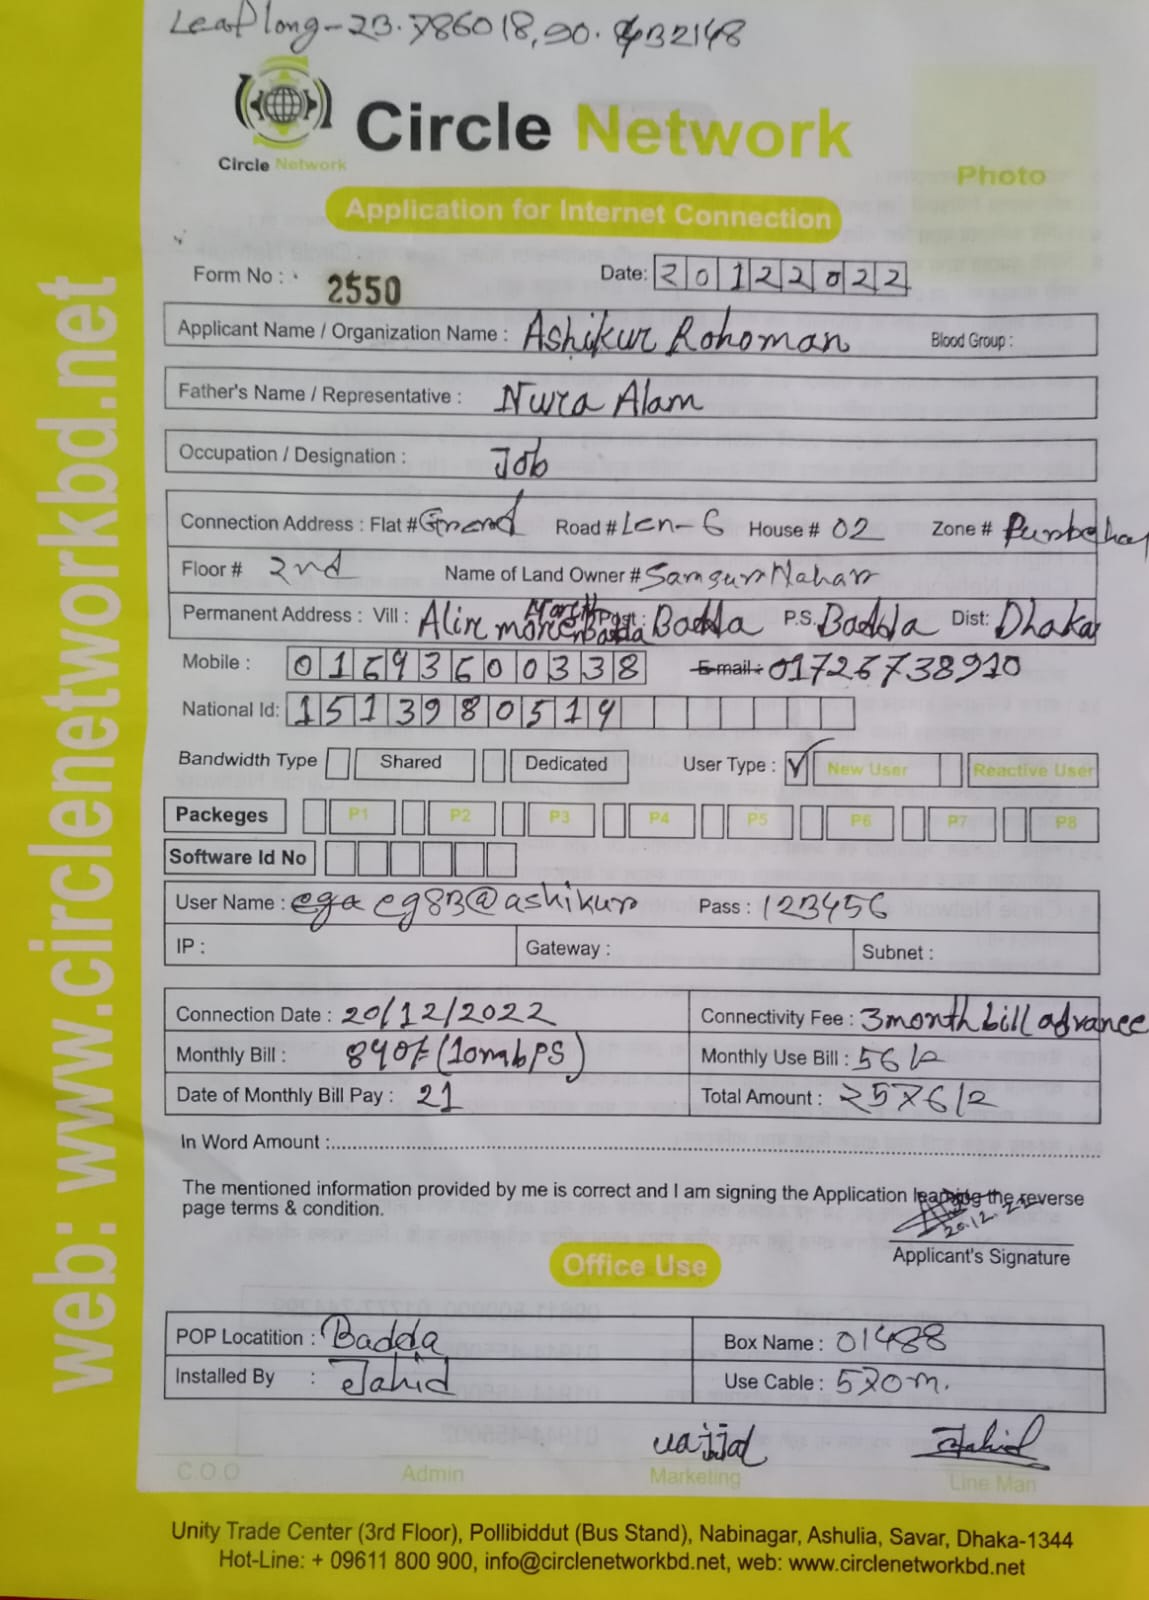 Leaf long - 23.786018, 90.432148
Circle Network
Circle Network
Photo
Application for Internet Connection
Form No : 2550 Date: 20122022
Applicant Name / Organization Name : Ashikur Rohoman Blood Group :
Father's Name / Representative : Nura Alam
Occupation / Designation : Job
Connection Address : Flat # Road # Len-6 House # 02 Zone #
Floor # 2nd Name of Land Owner # Samsun Nahar
Permanent Address : Vill : Alir more North Badda Post : Badda P.S. Badda Dist: Dhaka
Mobile : 01693600338 E-mail : 01726738910
National Id: 1513980519
Bandwidth Type Shared Dedicated User Type : New User Reactive User
Packeges P1 P2 P3 P4 P5 P6 P7 P8
Software Id No
User Name : eg83@ashikur Pass : 123456
IP : Gateway : Subnet :
Connection Date : 20/12/2022 Connectivity Fee : 3month bill advance
Monthly Bill : 840/- (10mbps) Monthly Use Bill : 56/=
Date of Monthly Bill Pay : 21 Total Amount : 2576/=
In Word Amount :
The mentioned information provided by me is correct and I am signing the Application the reverse
page terms & condition.
20.12.22
Applicant's Signature
Office Use
POP Locatition : Badda Box Name : 01488
Installed By : Jahid Use Cable : 520m.
Jahid
C.O.O Admin Marketing Line Man
Unity Trade Center (3rd Floor), Pollibiddut (Bus Stand), Nabinagar, Ashulia, Savar, Dhaka-1344
Hot-Line: + 09611 800 900, info@circlenetworkbd.net, web: www.circlenetworkbd.net
web: www.circlenetworkbd.net